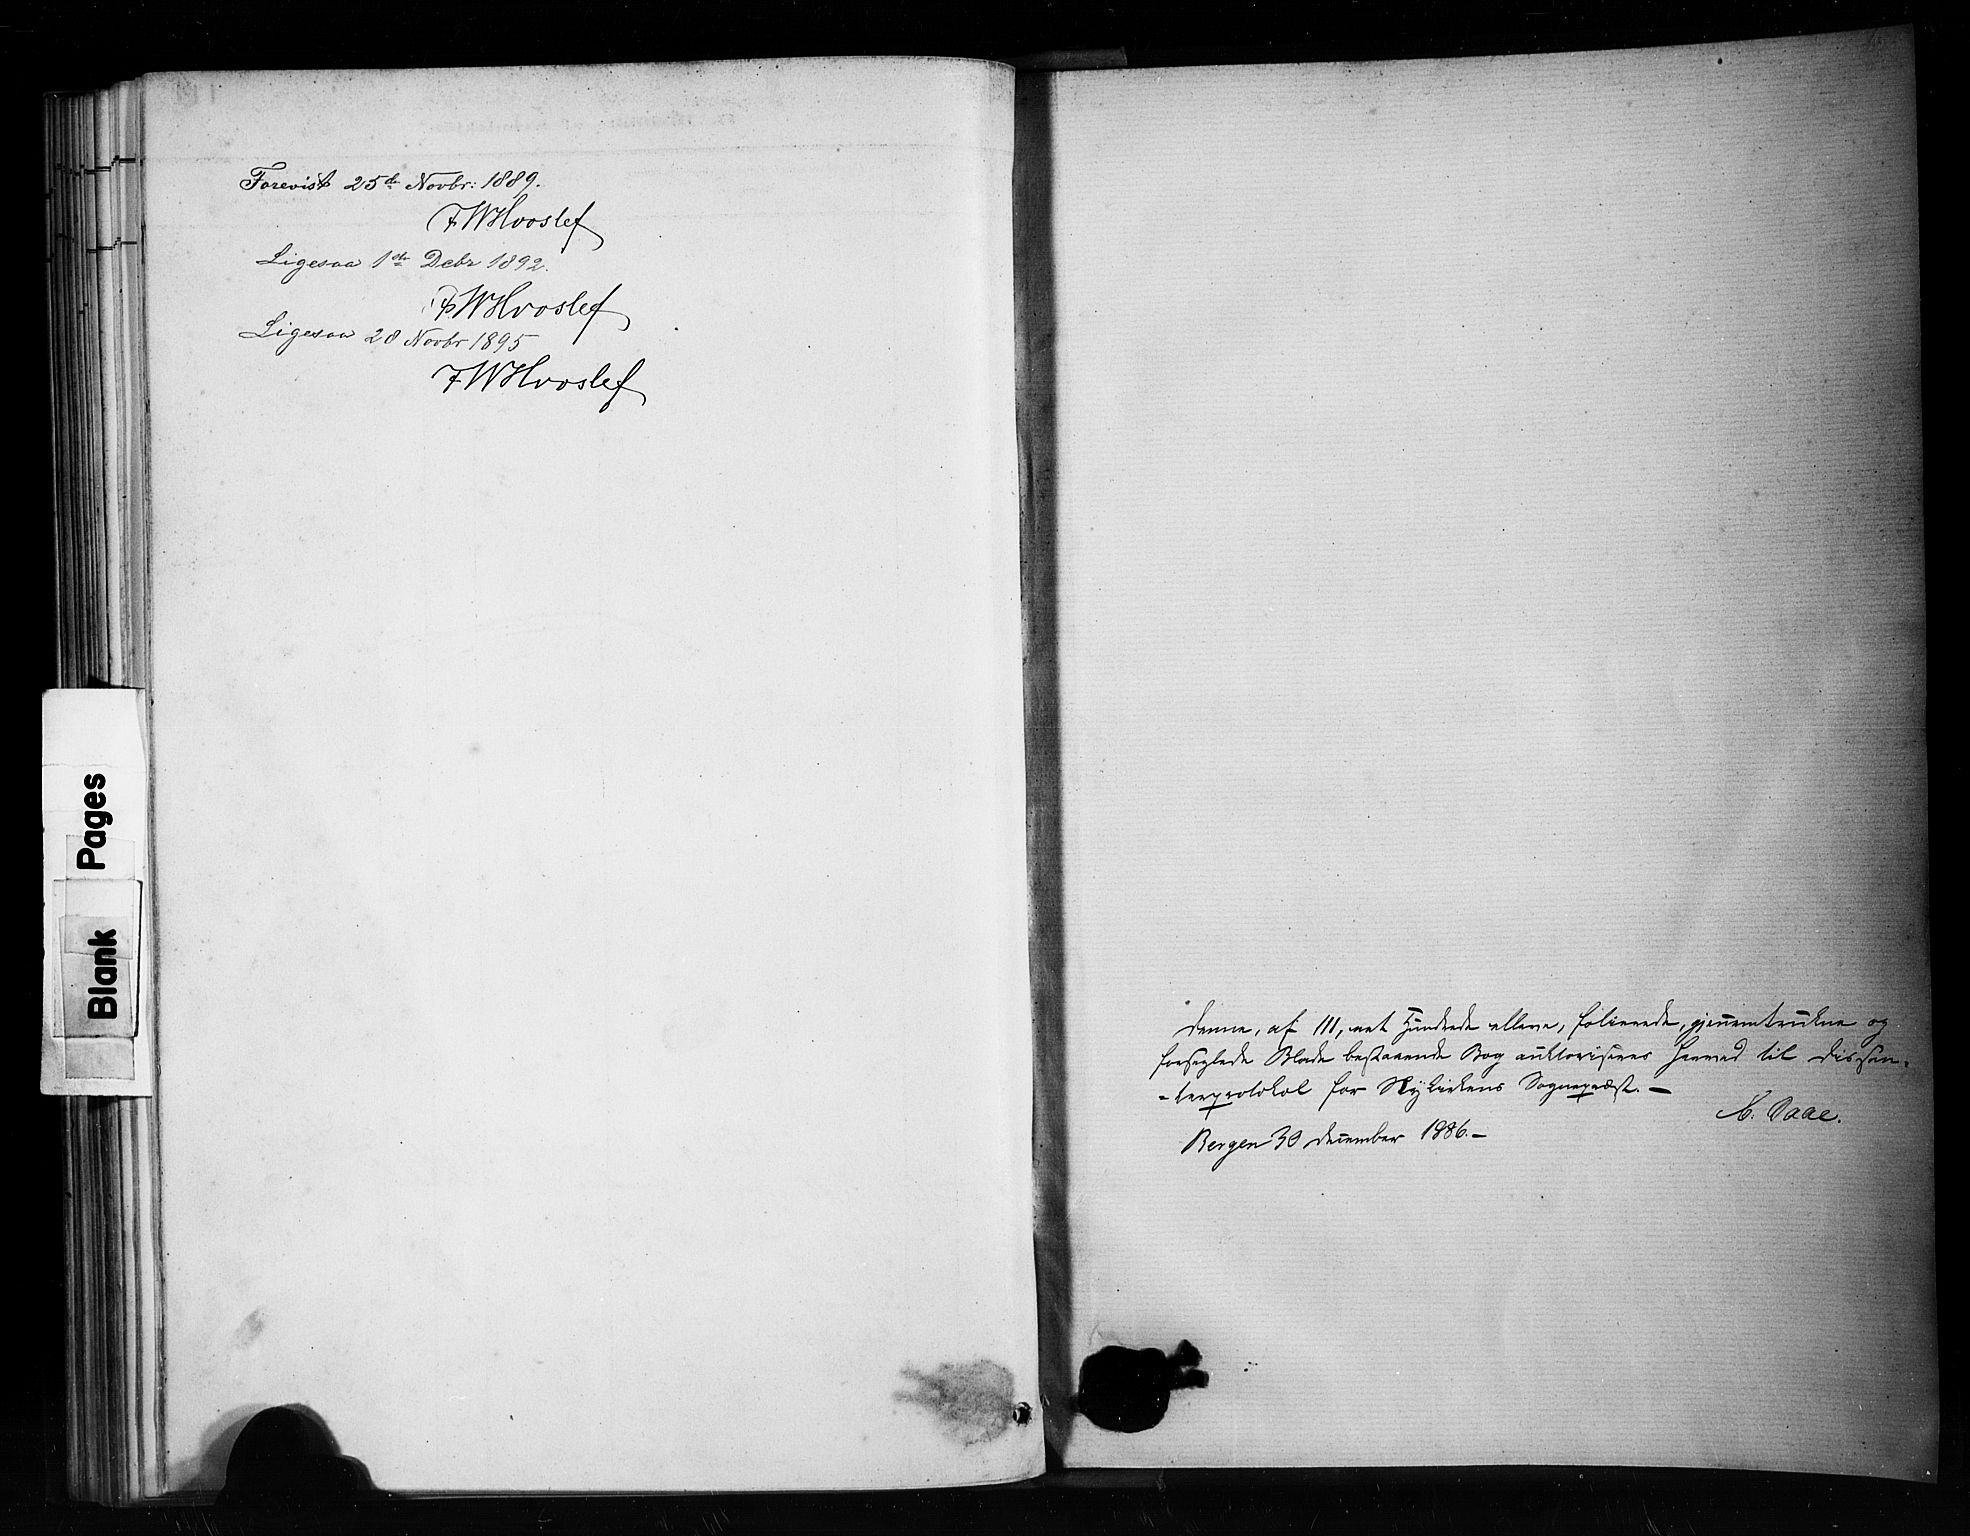 Forevist 25de Novbr: 1889.
FWHvoslef
Ligesaa 1ste Debr 1892.
FWHvoslef
Ligesaa 28 Novbr 1895
FWHvoslef
Blank Pages
Denne, af 111, eet Hundrede elleve, folierede, gjennemtrukne og
forseglede Blade bestaaende Bog auktoriseres herved til Dissen-
-terprotokol for Nykirkens Sognepræst. —
Daae.
Bergen 30 December 1886. —